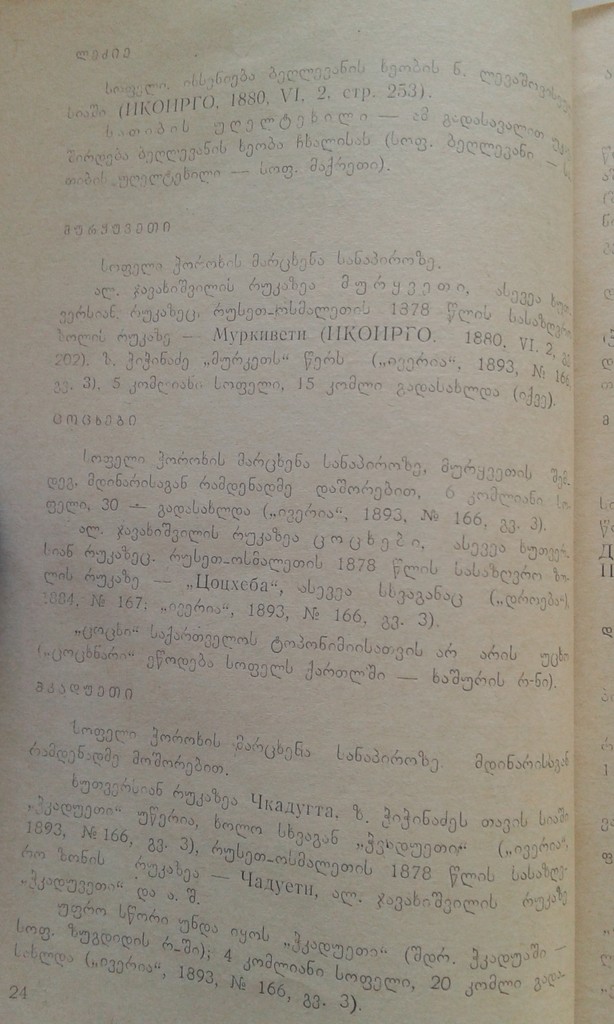 ლეძიე
სოფელი, იხსენიება ბეღლევანის ხეობის ნ. ლევაშოვისეულ
სიაში (ИКОИРГО, 1880, VI, 2, стр. 253).
ხათიბის უღელტეხილი — ამ გადასავალით უკა-
შირდება ბეღლევანის ხეობა ჩხალისას (სოფ. ბეღლევანი —
თიბის უღელტეხილი — სოფ. მაქრეთი).
მურყუვეთი
სოფელი ჭოროხის მარცხენა სანაპიროზე.
ალ. ჯავახიშვილის რუკაზეა მურყვეთი, ასევეა ხუთ-
ვერსიან რუკაზეც, რუსეთ-ოსმალეთის 1878 წლის სასაზღვრო
ზოლის რუკაზე — Муркивети (ИКОИРГО. 1880, VI, 2,
202). ზ. ჭიჭინაძე „მურკეთს“ წერს („ივერია“, 1893, № 166,
გვ. 3), 5 კომლიანი სოფელი, 15 კომლი გადასახლდა (იქვე).
ცოცხები
სოფელი ჭოროხის მარცხენა სანაპიროზე, მურყვეთის შემ-
დეგ, მდინარისაგან რამდენადმე დაშორებით, 6 კომლიანი სო-
ფელი, 30 — გადასახლდა („ივერია“, 1893, № 166, გვ. 3).
ალ. ჯავახიშვილის რუკაზეა ცოცხები, ასევეა ხუთვერ-
სიან რუკაზეც. რუსეთ-ოსმალეთის 1878 წლის სასაზღვრო ზო-
ლის რუკაზე — „Цоцхеба“, ასევეა სხვაგანაც („დროება“,
1884, № 167; „ივერია“, 1893, № 166, გვ. 3).
„ცოცხი“ საქართველოს ტოპონიმიისათვის არ არის უცხო
(„ცოცხნარი“ ეწოდება სოფელს ქართლში — ხაშურის რ-ნი).
მკადუეთი
სოფელი ჭოროხის მარცხენა სანაპიროზე. მდინარისაგან
რამდენადმე მოშორებით.
ხუთვერსიან რუკაზეა Чкадугта, ზ. ჭიჭინაძეს თავის სიაში
„ჭკადუეთი“ უწერია, ხოლო სხვაგან („ივერია“,
1893, № 166, გვ. 3), რუსეთ-ოსმალეთის 1878 წლის სასაზღვ-
რო ზონის რუკაზეა — Чадуети, ალ. ჯავახიშვილის რუკაზე
„ჭკადუვეთი“ და ა. შ.
უფრო სწორი უნდა იყოს „ჭკადუეთი“ (შდრ. ჭკადუაში —
სოფ. ზუგდიდის რ-ში); 4 კომლიანი სოფელი, 20 კომლი გადა-
სახლდა („ივერია“, 1893, № 166, გვ. 3).
24